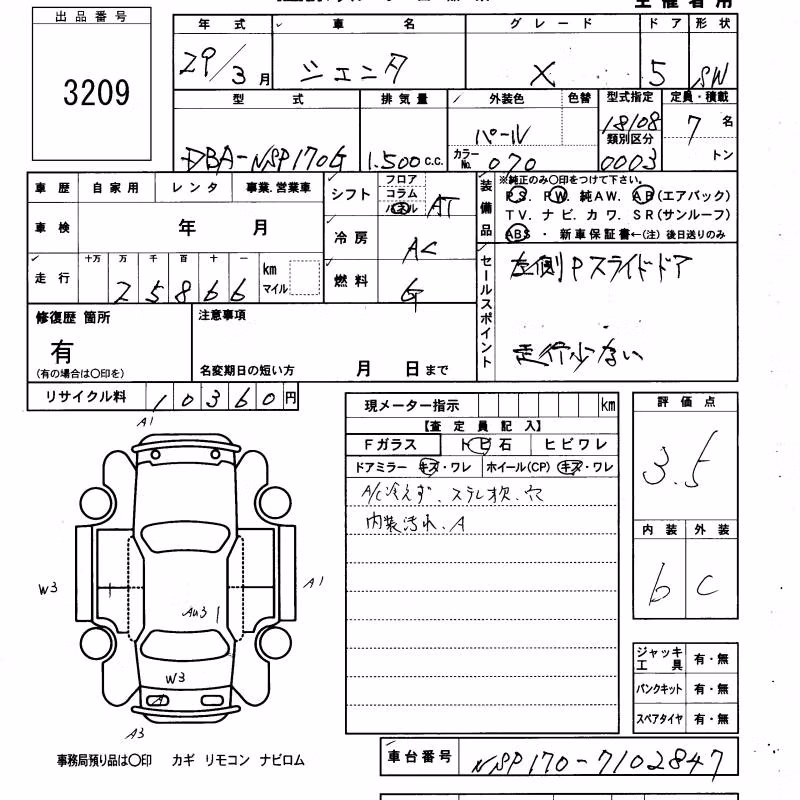 主催者用
出品番号
3209
年式 車名 グレード ドア 形状
29/3月 シエンタ X 5 SW
型式 排気量 外装色 色替 型式指定 定員・積載
DBA-NSP170G 1.500c.c. パール カラーNo. 070 18108 類別区分 0003 7名 トン
車歴 自家用 レンタ 事業.営業車
車検 年 月
走行 十万 万 千 百 十 一 km マイル
25866
シフト フロア コラム パネル AT
冷房 AC
燃料 G
装備品 ※純正のみ〇印をつけて下さい。
PS. PW. 純AW. AB(エアバック)
TV. ナビ. カワ. SR(サンルーフ)
ABS ・ 新車保証書←(注)後日送りのみ
セールスポイント 左側Pスライドドア
走行少ない
修復歴 箇所 注意事項
有
(有の場合は〇印を) 名変期日の短い方 月 日まで
リサイクル料 10360円
現メーター指示 km
【査定員記入】
Fガラス トビ石 ヒビワレ
ドアミラー キズ・ワレ ホイール(CP) キズ・ワレ
A/C冷えず、ステレオ欠、穴
内装汚れ、A
評価点
3.5
内装 外装
b C
A1
W3 A1
AU3
W3
A
A3
ジャッキ工具 有・無
パンクキット 有・無
スペアタイヤ 有・無
事務局預り品は〇印 カギ リモコン ナビロム
車台番号 NSP170-7102847